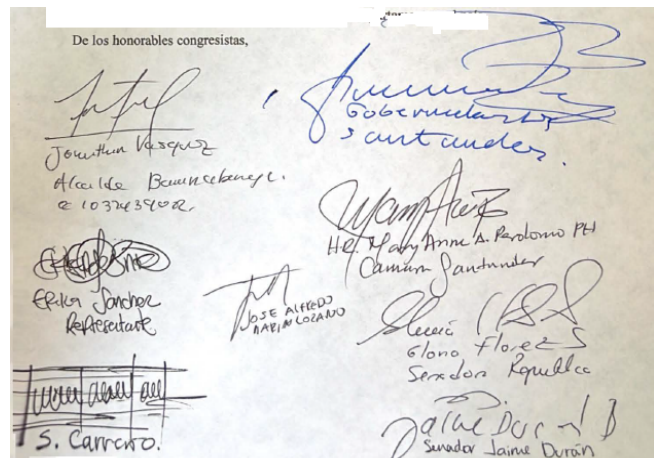 De los honorables congresistas,
Jonathan Vasquez
Alcalde Bucaramanga.
Gobernador
Santander.
H.R. Mary Anne A. Perdomo PH
Camara Santander
Erika Sanchez
Representante
JOSE ALFREDO
MARIN LOZANO
Gloria Florez S
Senadora Republica
S. Carreño.
Jaime Dur
Senador Jaime Durán